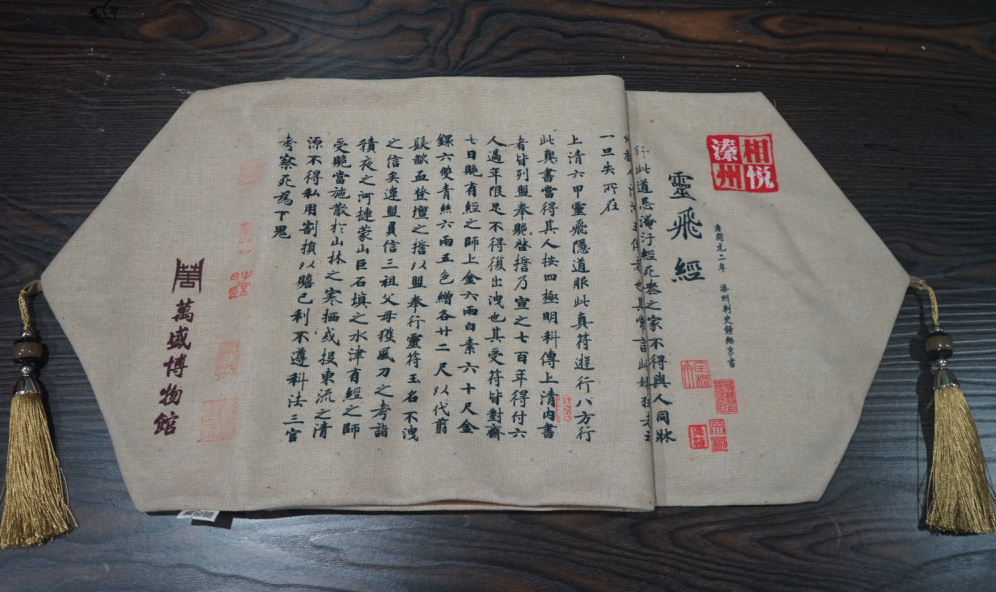 相悦
溱州
靈飛經
唐開元二年 溱州刺史鍾紹京書
行此道忌淹汙經死喪之家不得與人同牀
一旦失所在
上清六甲靈飛隱道服此真符遊行八方行
此真書當得其人按四極明科傳上清內書
者皆列盟奉跪啓誓乃宣之七百年得付六
人過年限足不得復出洩也其受符皆對齋
七日跪有經之師上金六兩白素六十尺金
鐶六雙青絲六兩五色繒各廿二尺以代翦
髮歃血登壇之誓以盟奉行靈符玉名不洩
之信矣違盟負信三祖父母獲風刀之考詣
積夜之河摙蒙山巨石填之水津有經之師
受貺當施散於山林之寒栖或投東流之清
源不得私用割損以贍己利不遵科法三官
考察死為下鬼
萬盛博物館